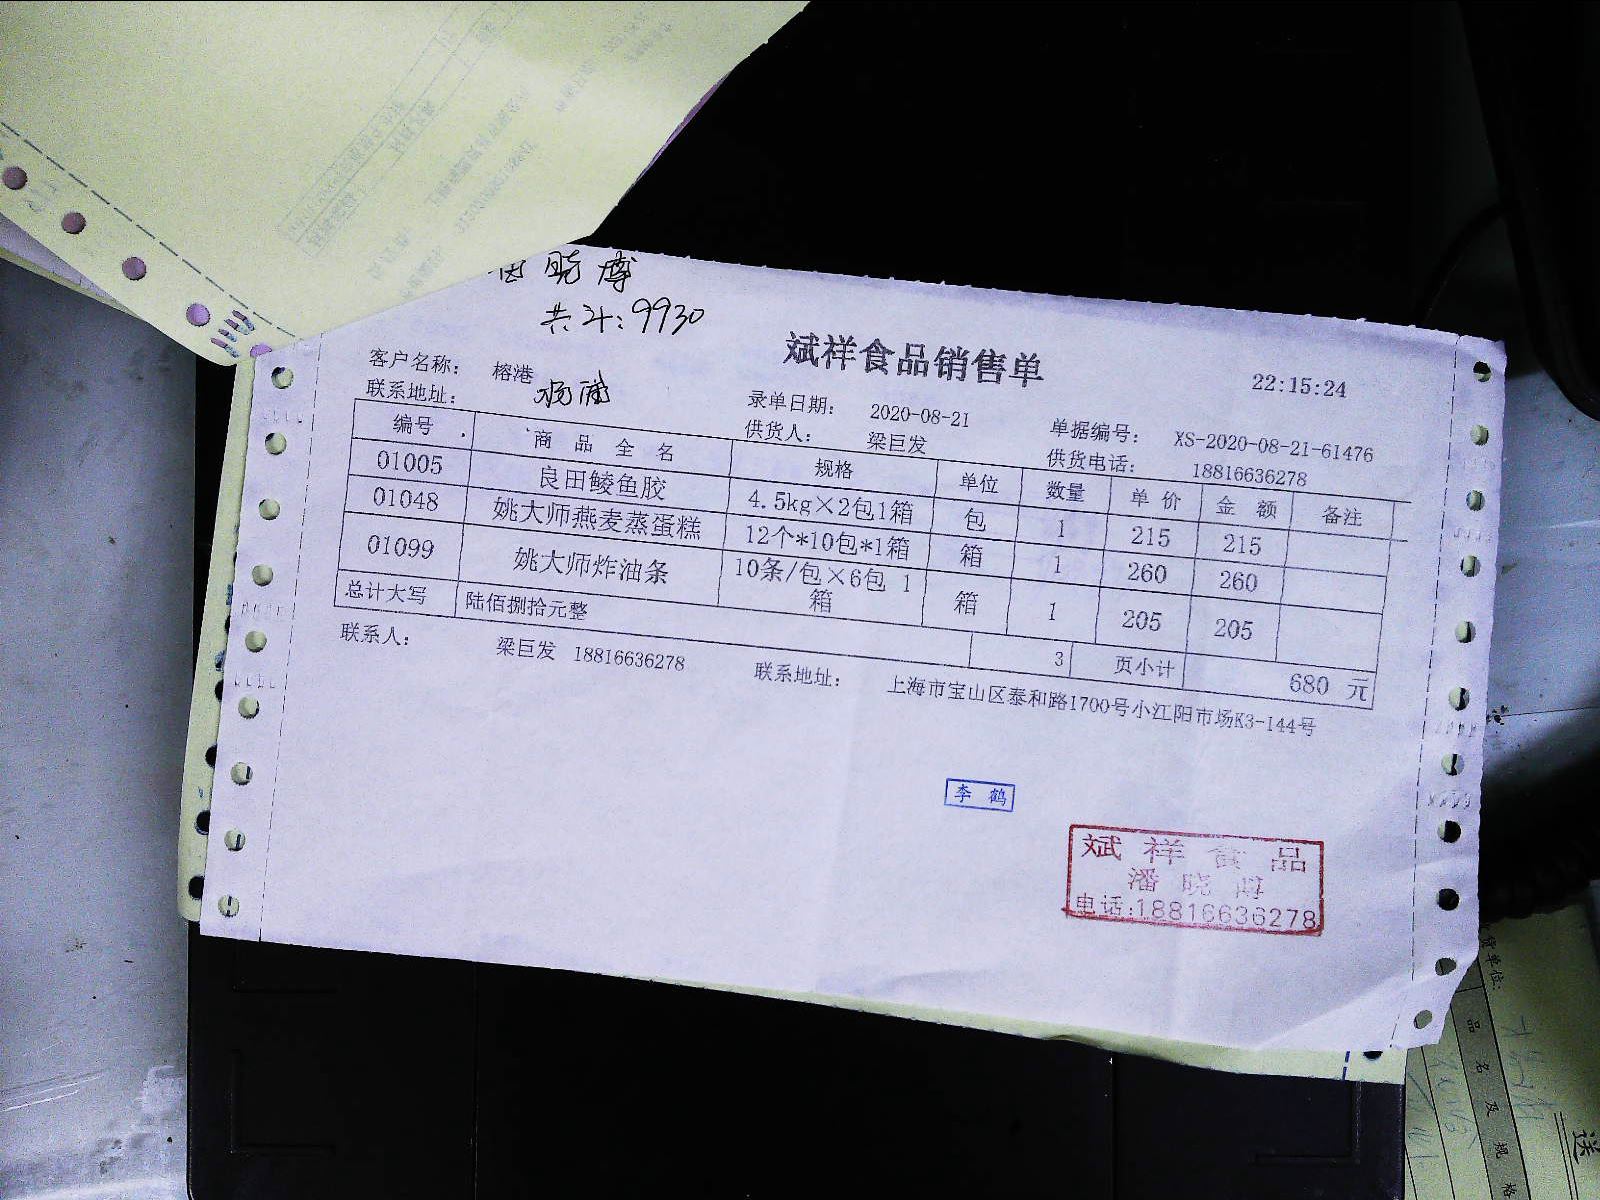 晓博
共计:9930
斌祥食品销售单
22:15:24
客户名称: 榕港
联系地址: 杨浦
录单日期: 2020-08-21
单据编号: XS-2020-08-21-61476
供货人: 梁巨发
供货电话: 18816636278
编号 商品全名 规格 单位 数量 单价 金额 备注
01005 良田鲮鱼胶 4.5kg×2包1箱 包 1 215 215
01048 姚大师燕麦蒸蛋糕 12个*10包*1箱 箱 1 260 260
01099 姚大师炸油条 10条/包×6包 1箱 箱 1 205 205
总计大写 陆佰捌拾元整 3 页小计 680 元
联系人: 梁巨发 18816636278 联系地址: 上海市宝山区泰和路1700号小江阳市场K3-144号
李鹤
斌祥食品
潘晓博
电话:18816636278
货单位:
品名及规格
送